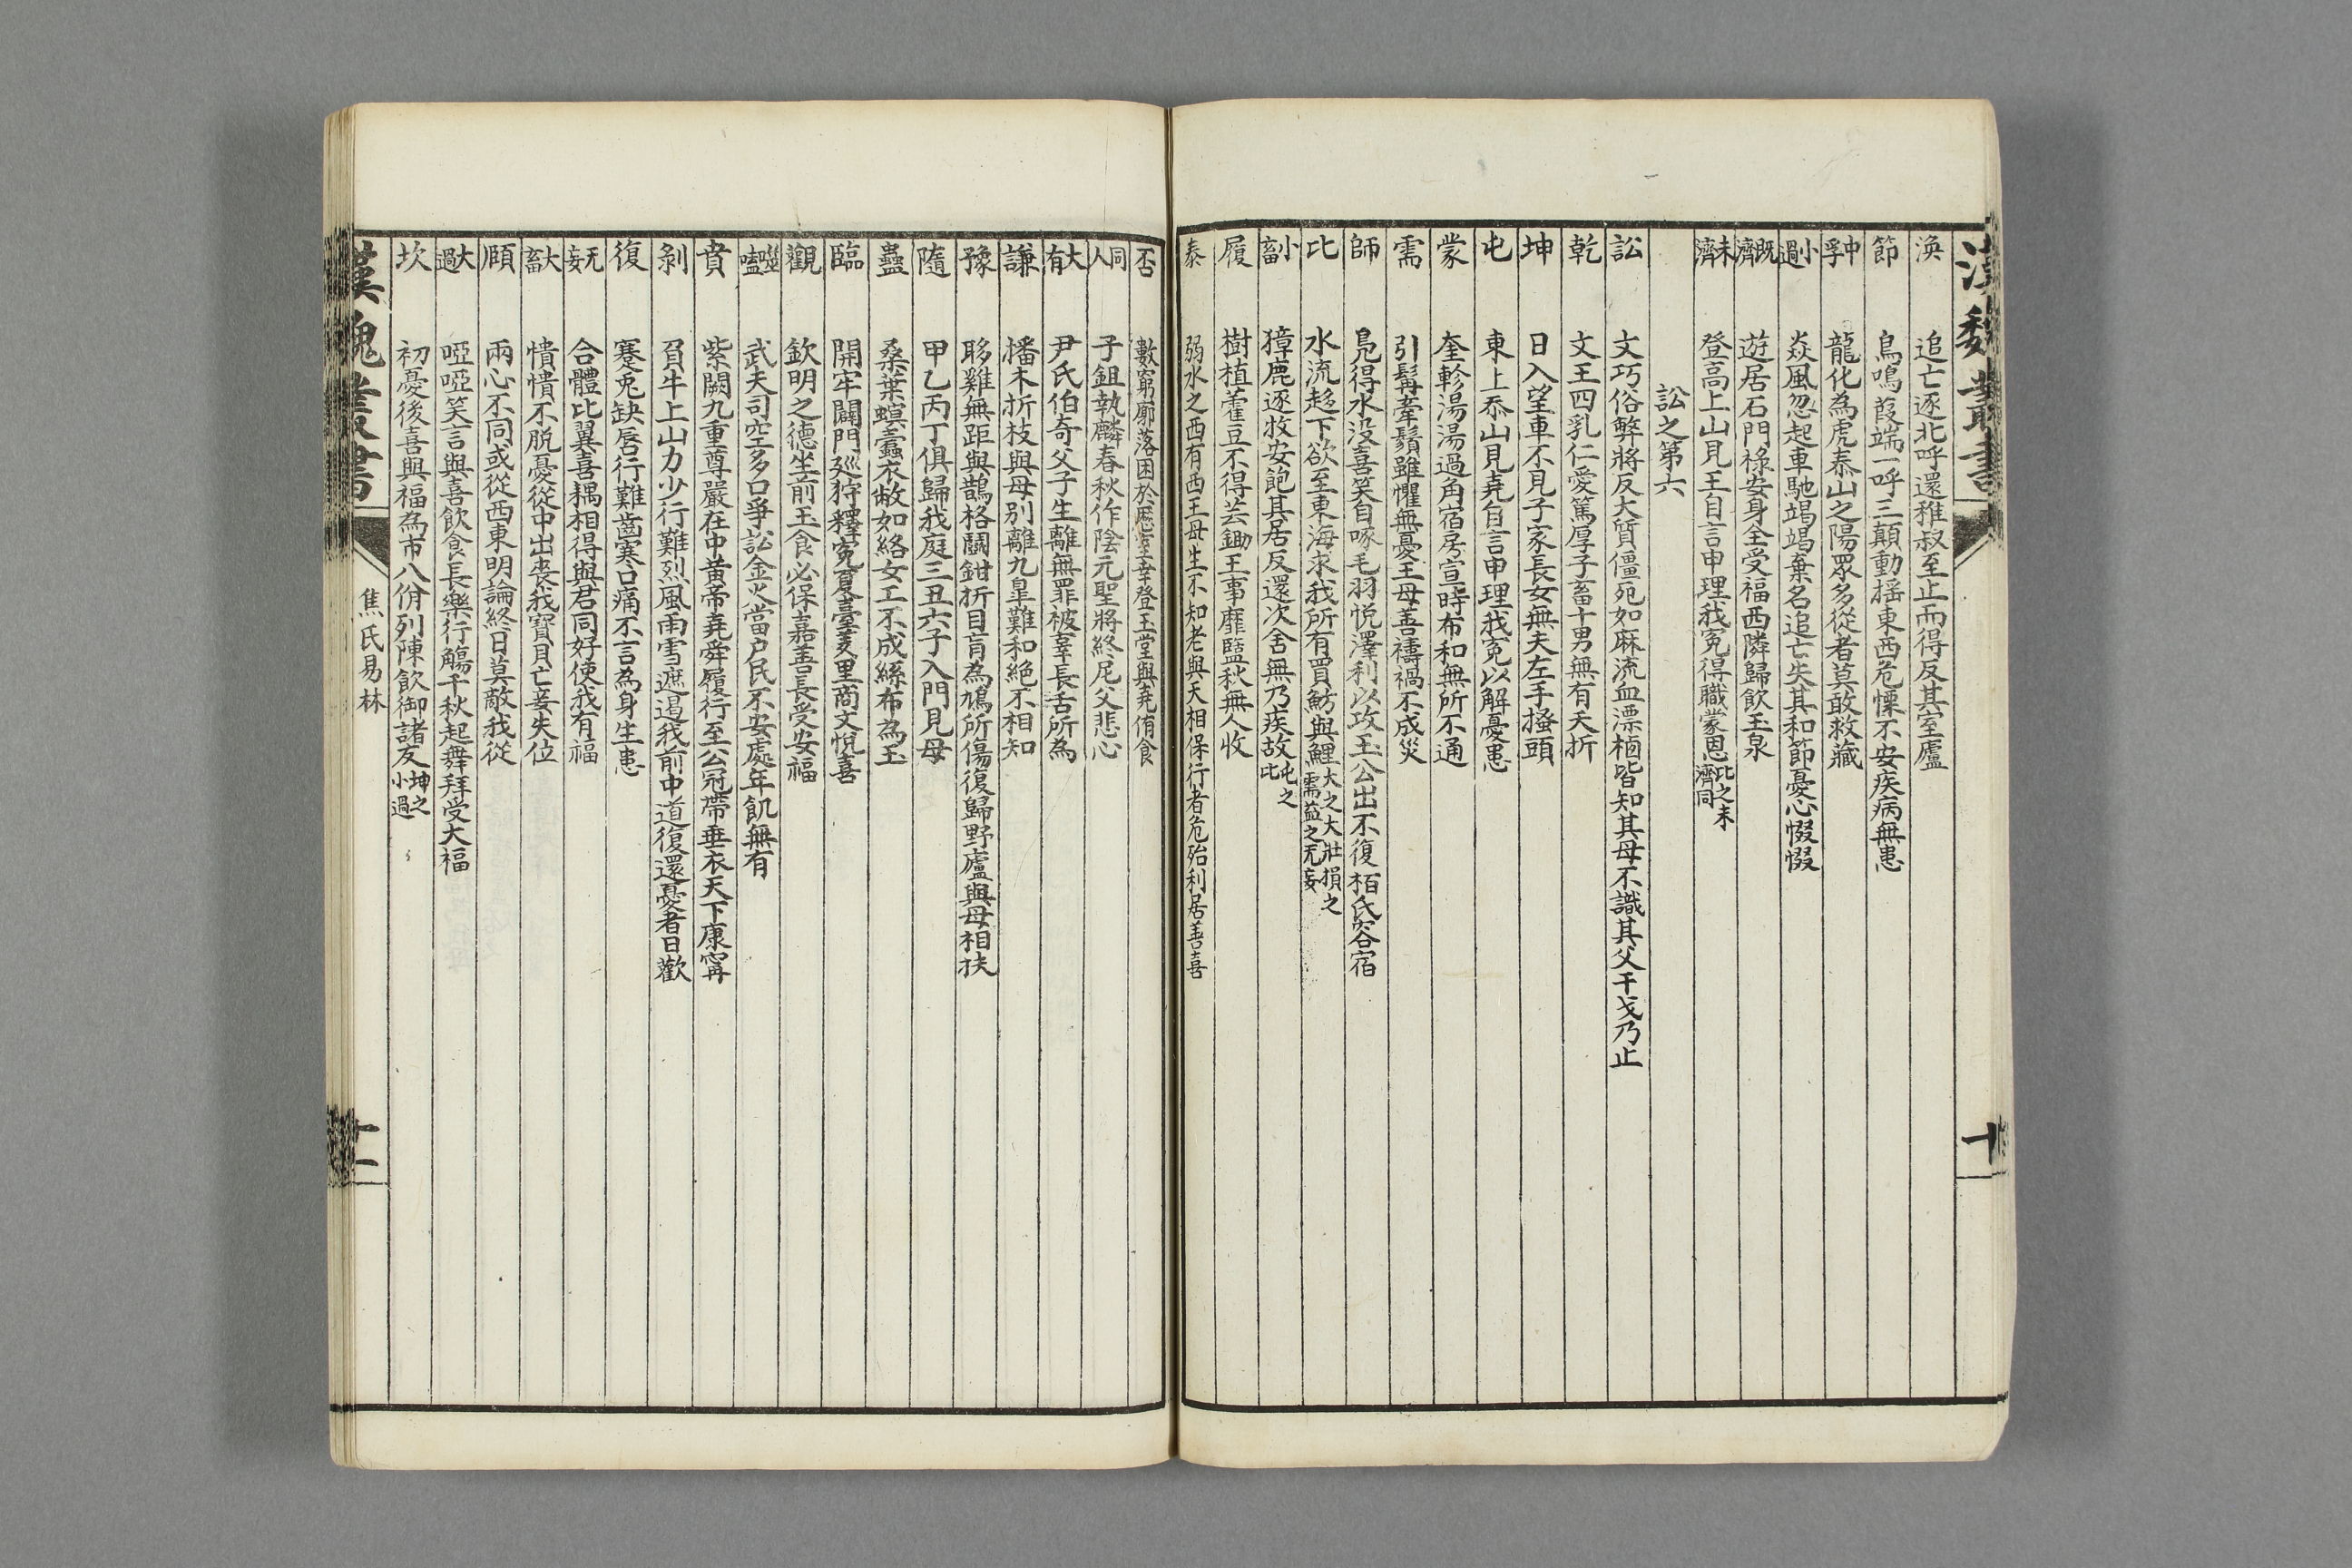 漢魏叢書
十
渙 追亡逐北呼還稚叔至止而得反其室廬
節 鳥鳴葭端一呼三顛動搖東西危慄不安疾病無患
中孚 龍化為虎泰山之陽眾多從者莫敢救藏
小過 焱風忽起車馳竭竭棄名追亡失其和節憂心惙惙
既濟 遊居石門祿安身全受福西隣歸飲玉泉
未濟 登高上山見王自言申理我冤得職蒙恩比之未濟同
訟之第六
訟 文巧俗弊將反大質僵死如麻流血漂櫓皆知其母不識其父干戈乃止
乾 文王四乳仁愛篤厚子畜十男無有夭折
坤 日入望車不見子家長女無夫左手搔頭
屯 東上泰山見堯自言申理我冤以解憂患
蒙 奎軫湯湯過角宿房宣時布和無所不通
需 引髯牽鬚雖懼無憂王母善禱禍不成災
師 鳧得水没喜笑自啄毛羽悦澤利以攻玉公出不復栢氏容宿
比 水流趍下欲至東海求我所有買魴與鯉大之大壯損之需益之无妄
小畜 獐鹿逐牧安飽其居反還次舍無乃疾故屯之比
履 樹植藿豆不得芸鋤王事靡盬秋無人收
泰 弱水之西有西王母生不知老與天相保行者危殆利居善喜
否 數窮廓落困於歷室幸登玉堂與堯侑食
同人 子鉏執麟春秋作陰元聖將終尼父悲心
大有 尹氏伯奇父子生離無罪被辜長舌所為
謙 播木折枝與母别離九皐難和絶不相知
豫 眵雞無距與鵲格鬪鉗折目盲為鳩所傷復歸野廬與母相扶
隨 甲乙丙丁俱歸我庭三丑六子入門見母
蠱 桑葉螟蠹衣敝如絡女工不成絲布為玉
臨 開牢闢門廵狩釋寃夏臺羑里商文悅喜
觀 欽明之德坐前玉食必保嘉善長受安福
噬嗑 武夫司空多口爭訟金火當户民不安處年飢無有
賁 紫闕九重尊嚴在中黄帝堯舜履行至公冠帶垂衣天下康寧
剝 負牛上山力少行難烈風雨雪遮遏我前中道復還憂者日歡
復 蹇兎缺唇行難齒寒口痛不言為身生患
无妄 合體比翼喜耦相得與君同好使我有福
大畜 憒憒不脱憂從中出喪我寶貝亡妾失位
頤 兩心不同或從西東明論終日莫敵我從
大過 啞啞笑言與喜飲食長樂行觴千秋起舞拜受大福
坎 初憂後喜與福為市八佾列陳飲御諸友坤之小過
漢魏叢書
焦氏易林
十一